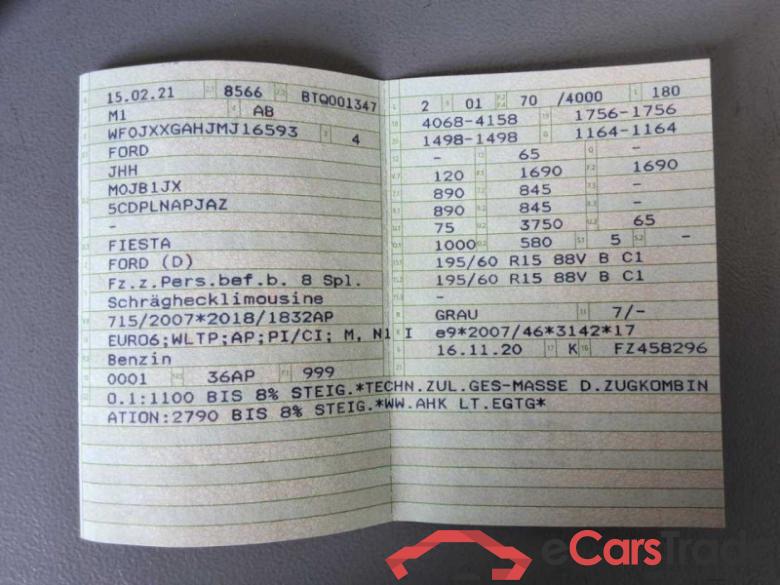 15.02.21 8566 BTQ001347
M1 AB
WF0JXXGAHJMJ16593 4
FORD
JHH
M0JB1JX
5CDPLNAPJAZ
-
FIESTA
FORD (D)
Fz.z.Pers.bef.b. 8 Spl.
Schräghecklimousine
715/2007*2018/1832AP
EURO6;WLTP;AP;PI/CI; M, N1 I
Benzin
0001 36AP 999
2 01 70 /4000 180
4068-4158 1756-1756
1498-1498 1164-1164
- 65 -
120 1690 1690
890 845 -
890 845 -
75 3750 65
1000 580 5 -
195/60 R15 88V B C1
195/60 R15 88V B C1
-
GRAU 7/-
e9*2007/46*3142*17
16.11.20 K FZ458296
O.1:1100 BIS 8% STEIG.*TECHN.ZUL.GES-MASSE D.ZUGKOMBIN
ATION:2790 BIS 8% STEIG.*WW.AHK LT.EGTG*
eCarsTrade